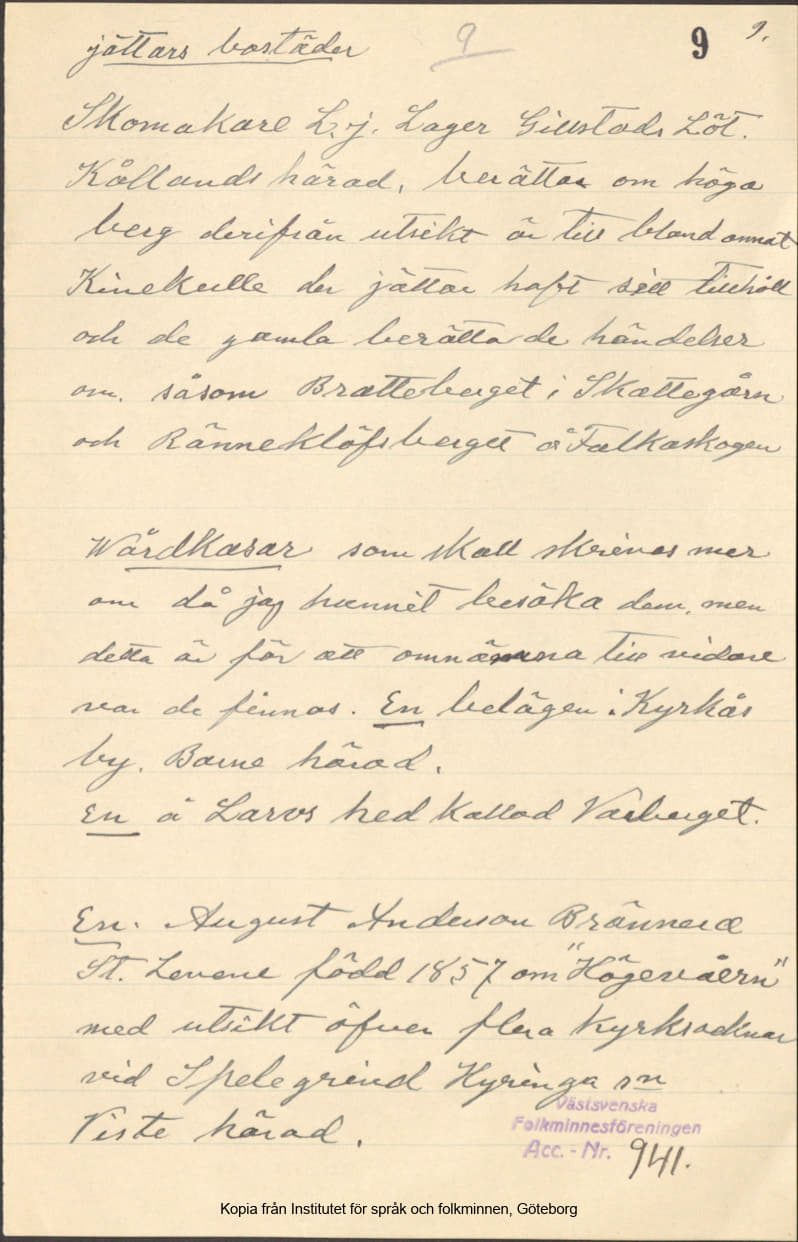 jättars bostäder 9 9 9.
Skomakare L. j. Lager Gillstads Löt.
Kållands härad, berättar om höga
berg derifrån utsikt är till bland annat
Kinekulle der jättar haft sitt tillhåll
och de gamla berättade händelser
om. såsom Bratteberget i Skattegårn
och Ränneklöfsberget å Falkaskogen
Wårdkasar som skall skrivas mer
om då jag hunnit besöka dem, men
detta är för att omnämna till vidare
var de finnas. En belägen i Kyrkås
by. Barne härad.
En å Larvs hed kallad Varberget.
En. August Anderson Brännera
St. Levene född 1857 om "Högevåern"
med utsikt öfver flera kyrksocknar
vid Spelegrind Hyringa sn
Viste härad.
Västsvenska
Folkminnesföreningen
Acc. - Nr. 941.
Kopia från Institutet för språk och folkminnen, Göteborg